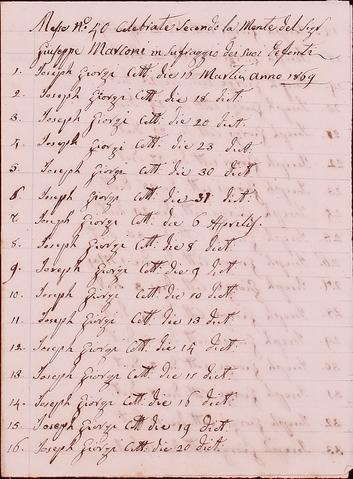 Messe N.º 40 Celebrate Secondo la Mente del Sig.r
Giuseppe Marconi in Suffraggio dei suoi defonti
1. Joseph Giorgi Cctt. die 16 Martii anno 1869
2. Joseph Giorgi Cctt. die 18 dict.
3. Joseph Giorgi Cctt. die 20 dict.
4. Joseph Giorgi Cctt. die 23 dict
5. Joseph Giorgi Cctt. die 30 dict
6. Joseph Giorgi Cctt. die 31 dict.
7. Joseph Giorgi Cctt. die 6 Aprilis.
8. Joseph Giorgi Cctt. die 8 dict
9. Joseph Giorgi Cctt. die 9 dict
10. Joseph Giorgi Cctt. die 10 dict.
11. Joseph Giorgi Cctt. die 13 dict
12. Joseph Giorgi Cctt. die 14 dict.
13. Joseph Giorgi Cctt. die 15 dict.
14. Joseph Giorgi Cctt. die 16 dict.
15. Joseph Giorgi Cctt. die 19 dict.
16. Joseph Giorgi Cctt. die 20 dict.